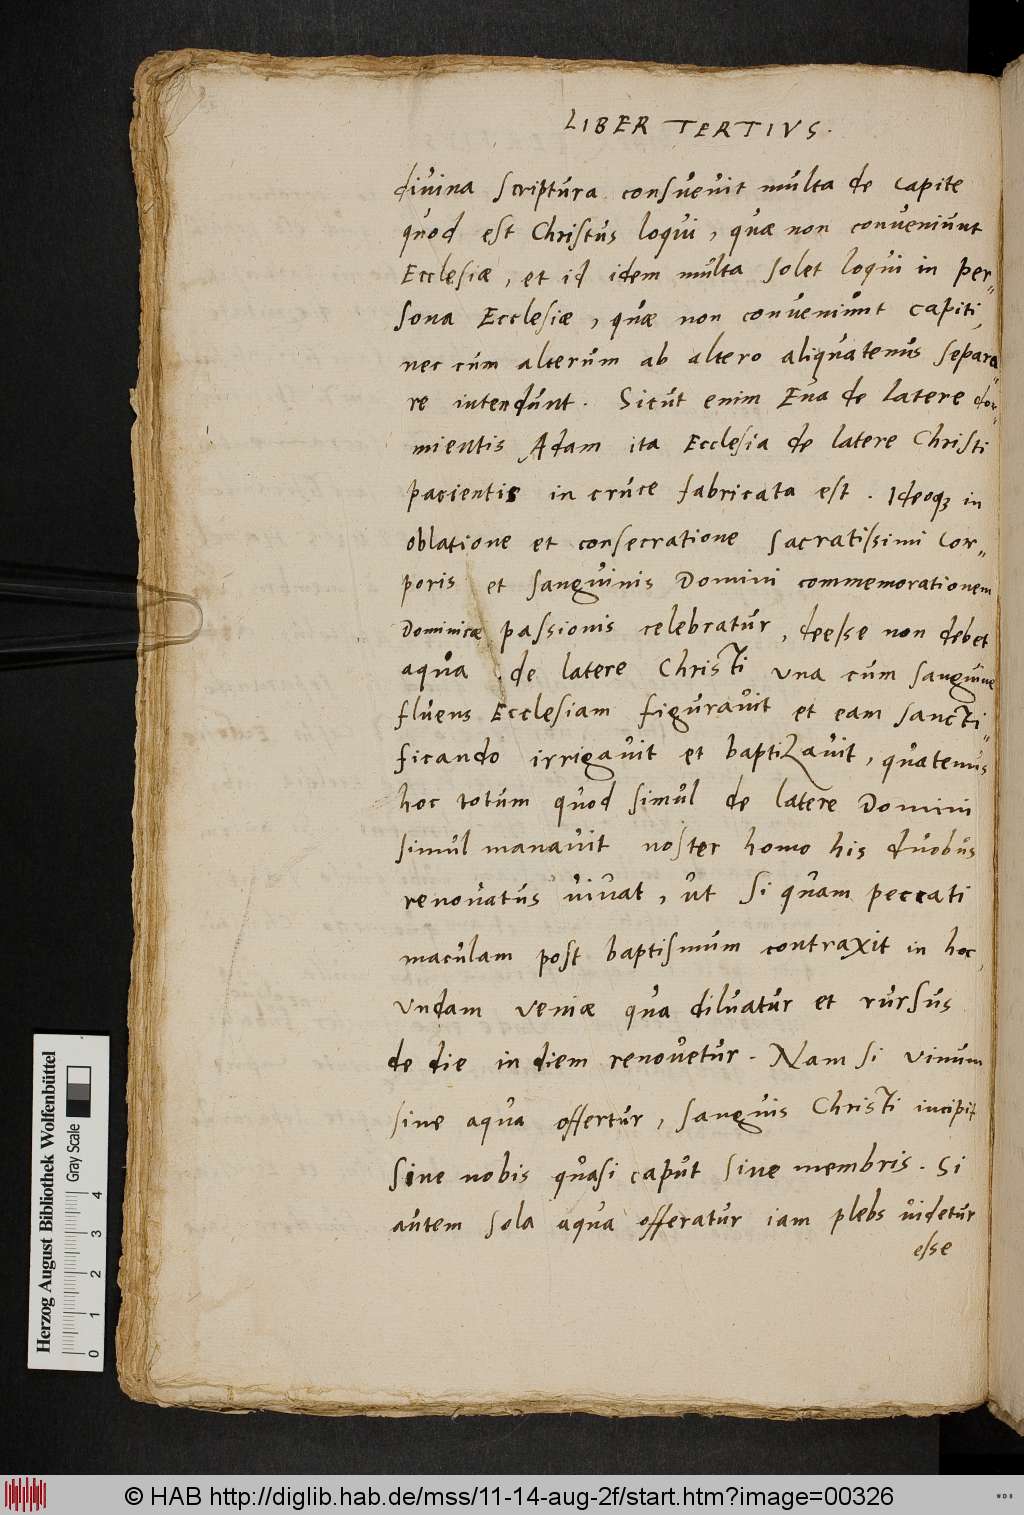 LIBER TERTIVS.
divina scriptura consuevit multa de capite
quod est Christus loqui, quæ non conveniunt
Ecclesiæ, et id idem multa solet loqui in per„
sona Ecclesiæ, quæ non conveniunt capiti,
nec cum alterum ab altero aliquatenus separa„
re intendunt. Sicut enim Eua de latere dor„
mientis Adam ita Ecclesia de latere Christi
pacientis in cruce fabricata est. Ideoqꝫ in
oblatione et consecratione sacratissimi Cor„
poris et sanguinis Domini commemorationem
Dominicæ passionis celebratur, deesse non debet
aqua de latere Christi una cum sanguine
fluens Ecclesiam figuravit et eam sancti„
ficando irrigavit et baptizavit, quatenus
hoc totum quod simul de latere Domini
simul manavit noster homo his duobus
renovatus vivat, ut si quam peccati
maculam post baptismum contraxit in hoc,
undam veniæ qua diluatur et rursus
de die in diem renovetur. Nam si vinum
sine aqua offertur, sanguis Christi incipit
sine nobis quasi caput sine membris. Si
autem sola aqua offeratur iam plebs videtur
esse
Herzog August Bibliothek Wolfenbüttel
Gray Scale
0 1 2 3 4
© HAB http://diglib.hab.de/mss/11-14-aug-2f/start.htm?image=00326